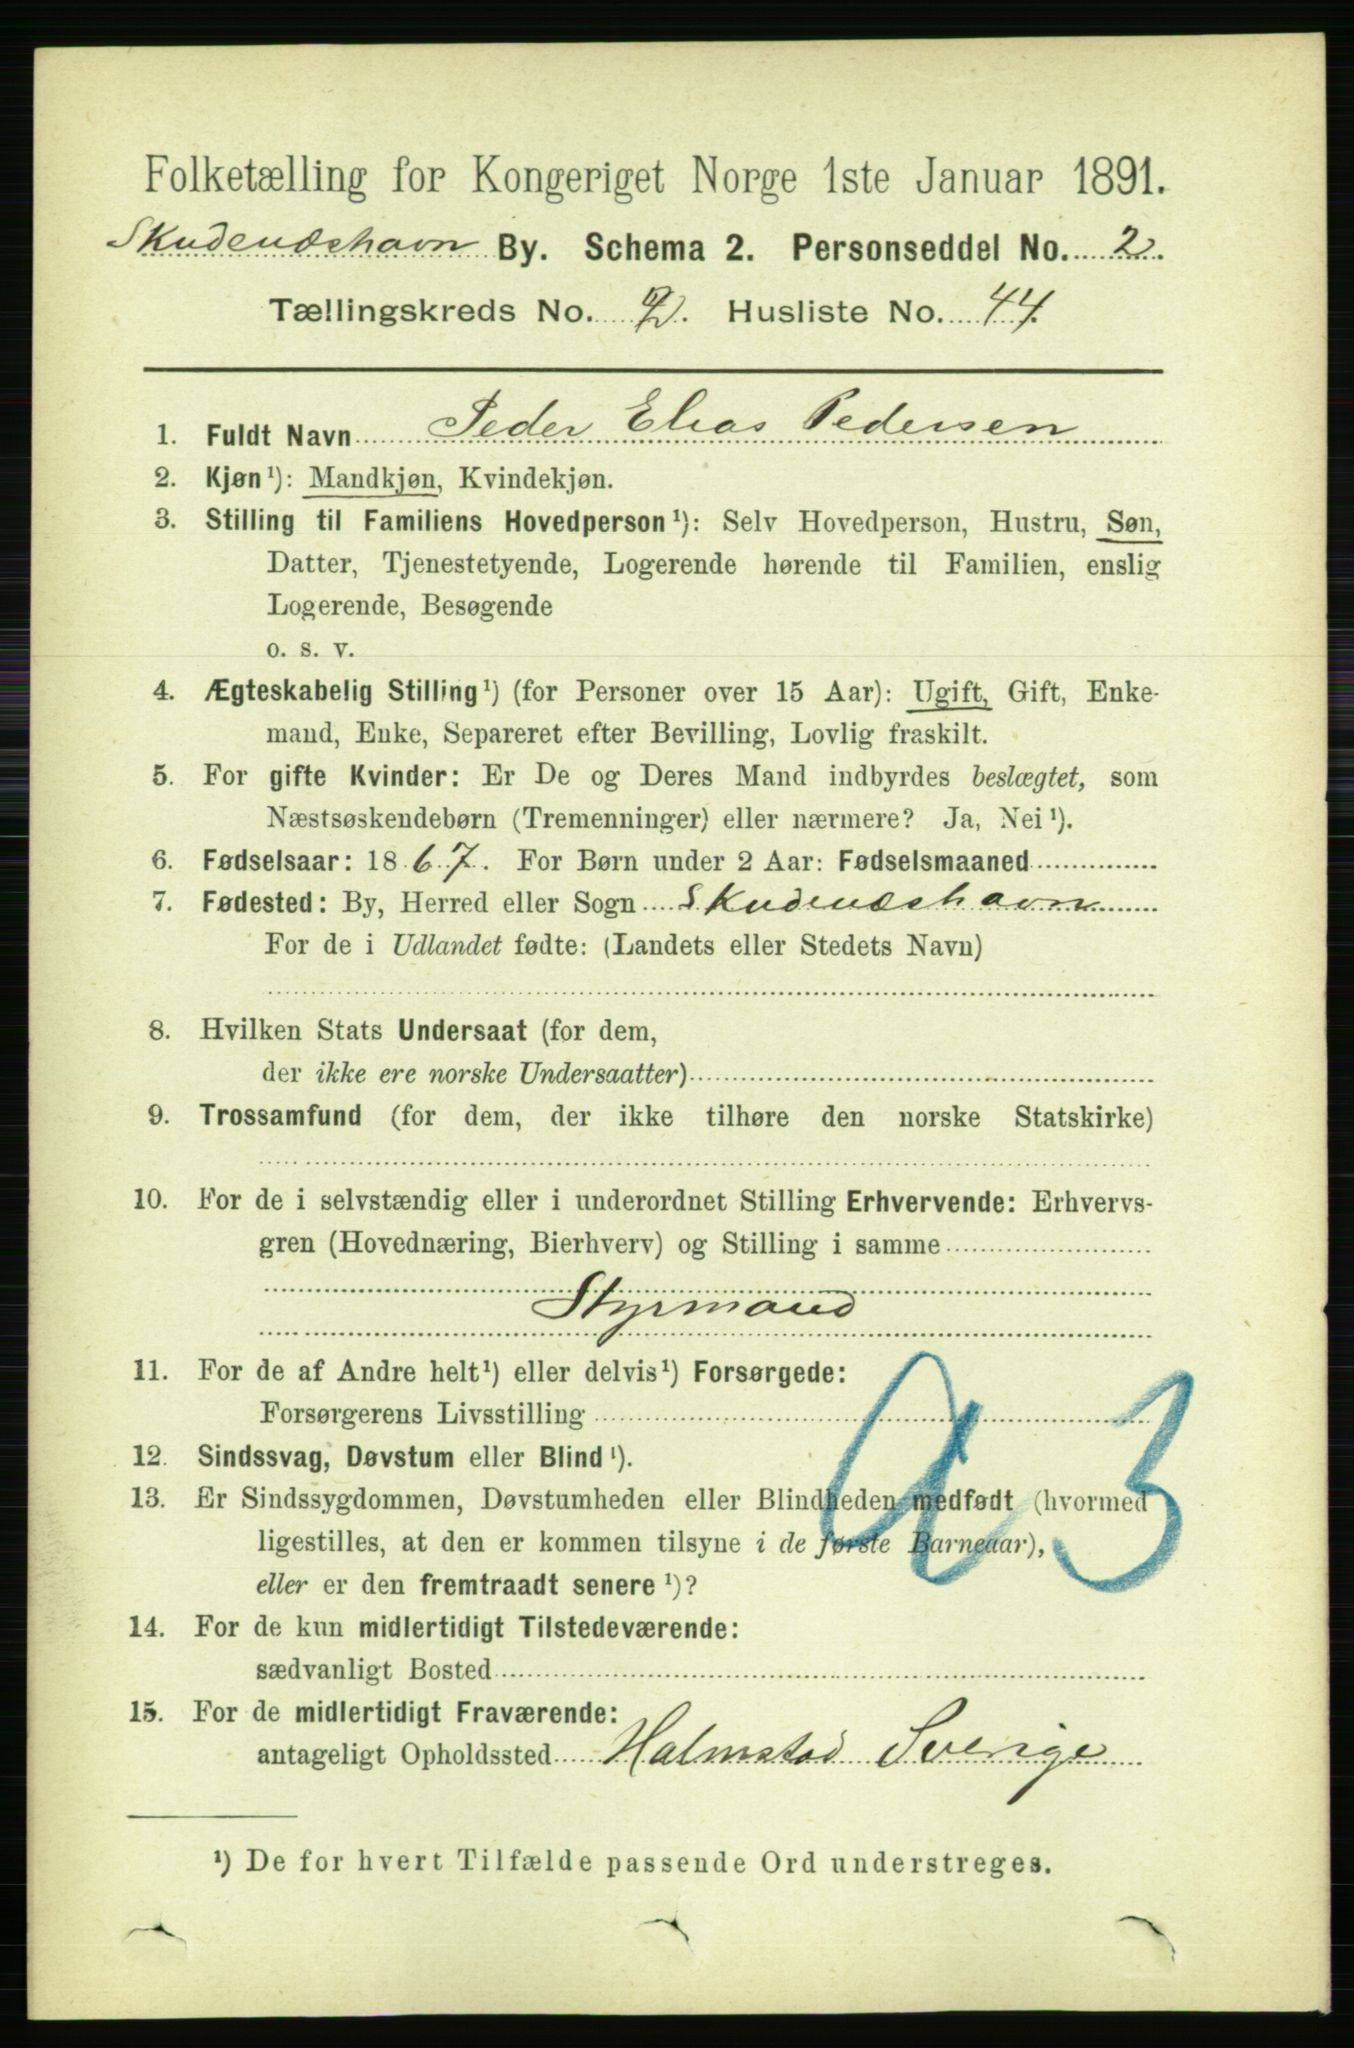 Folketælling for Kongeriget Norge 1ste Januar 1891.
Skudenæshavn By. Schema 2. Personseddel No. 2.
Tællingskreds No. 2. Husliste No. 44.
1. Fuldt Navn Peder Elias Pedersen
2. Kjøn¹): Mandkjøn, Kvindekjøn.
3. Stilling til Familiens Hovedperson¹): Selv Hovedperson, Hustru, Søn,
Datter, Tjenestetyende, Logerende hørende til Familien, enslig
Logerende, Besøgende
o. s. v.
4. Ægteskabelig Stilling¹) (for Personer over 15 Aar): Ugift, Gift, Enke-
mand, Enke, Separeret efter Bevilling, Lovlig fraskilt.
5. For gifte Kvinder: Er De og Deres Mand indbyrdes beslægtet, som
Næstsøskendebørn (Tremenninger) eller nærmere? Ja, Nei¹).
6. Fødselsaar: 1867. For Børn under 2 Aar: Fødselsmaaned
7. Fødested: By, Herred eller Sogn Skudenæshavn
For de i Udlandet fødte: (Landets eller Stedets Navn)
8. Hvilken Stats Undersaat (for dem,
der ikke ere norske Undersaatter)
9. Trossamfund (for dem, der ikke tilhøre den norske Statskirke)
10. For de i selvstændig eller i underordnet Stilling Erhvervende: Erhvervs-
gren (Hovednæring, Bierhverv) og Stilling i samme
Styrmand
11. For de af Andre helt¹) eller delvis¹) Forsørgede:
Forsørgerens Livsstilling
12. Sindssvag, Døvstum eller Blind¹).
13. Er Sindssygdommen, Døvstumheden eller Blindheden medfødt (hvormed
ligestilles, at den er kommen tilsyne i de første Barneaar),
eller er den fremtraadt senere¹)?
a 3
14. For de kun midlertidigt Tilstedeværende:
sædvanligt Bosted
15. For de midlertidigt Fraværende:
antageligt Opholdssted Halmstad Sverige
¹) De for hvert Tilfælde passende Ord understreges.